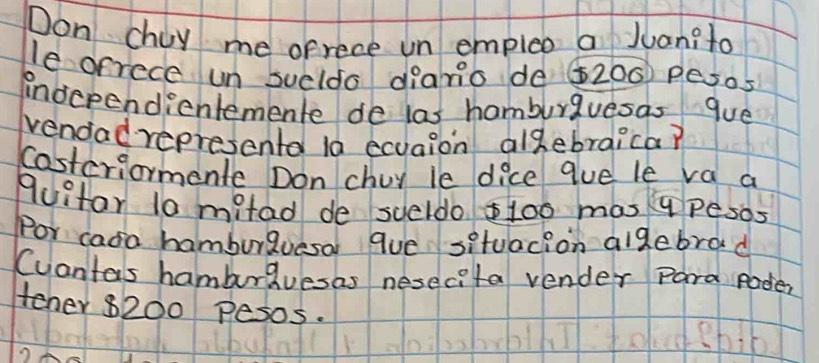 Don chuy me ofrece un empleo a Juanito
le ofrece un sueldo diario de $200 pesos
independientemente de las hamburguesas que
vendad representa la ecuaion algebraica?
Casteriormente Don chuy le dice que le va a
quitar la mitad de sueldo $100 mas 4 pesos
Por cada hamburguesa que situacion algebrad
Cuantas hamburguesas nesecita vender para poder
tener $200 pesos.